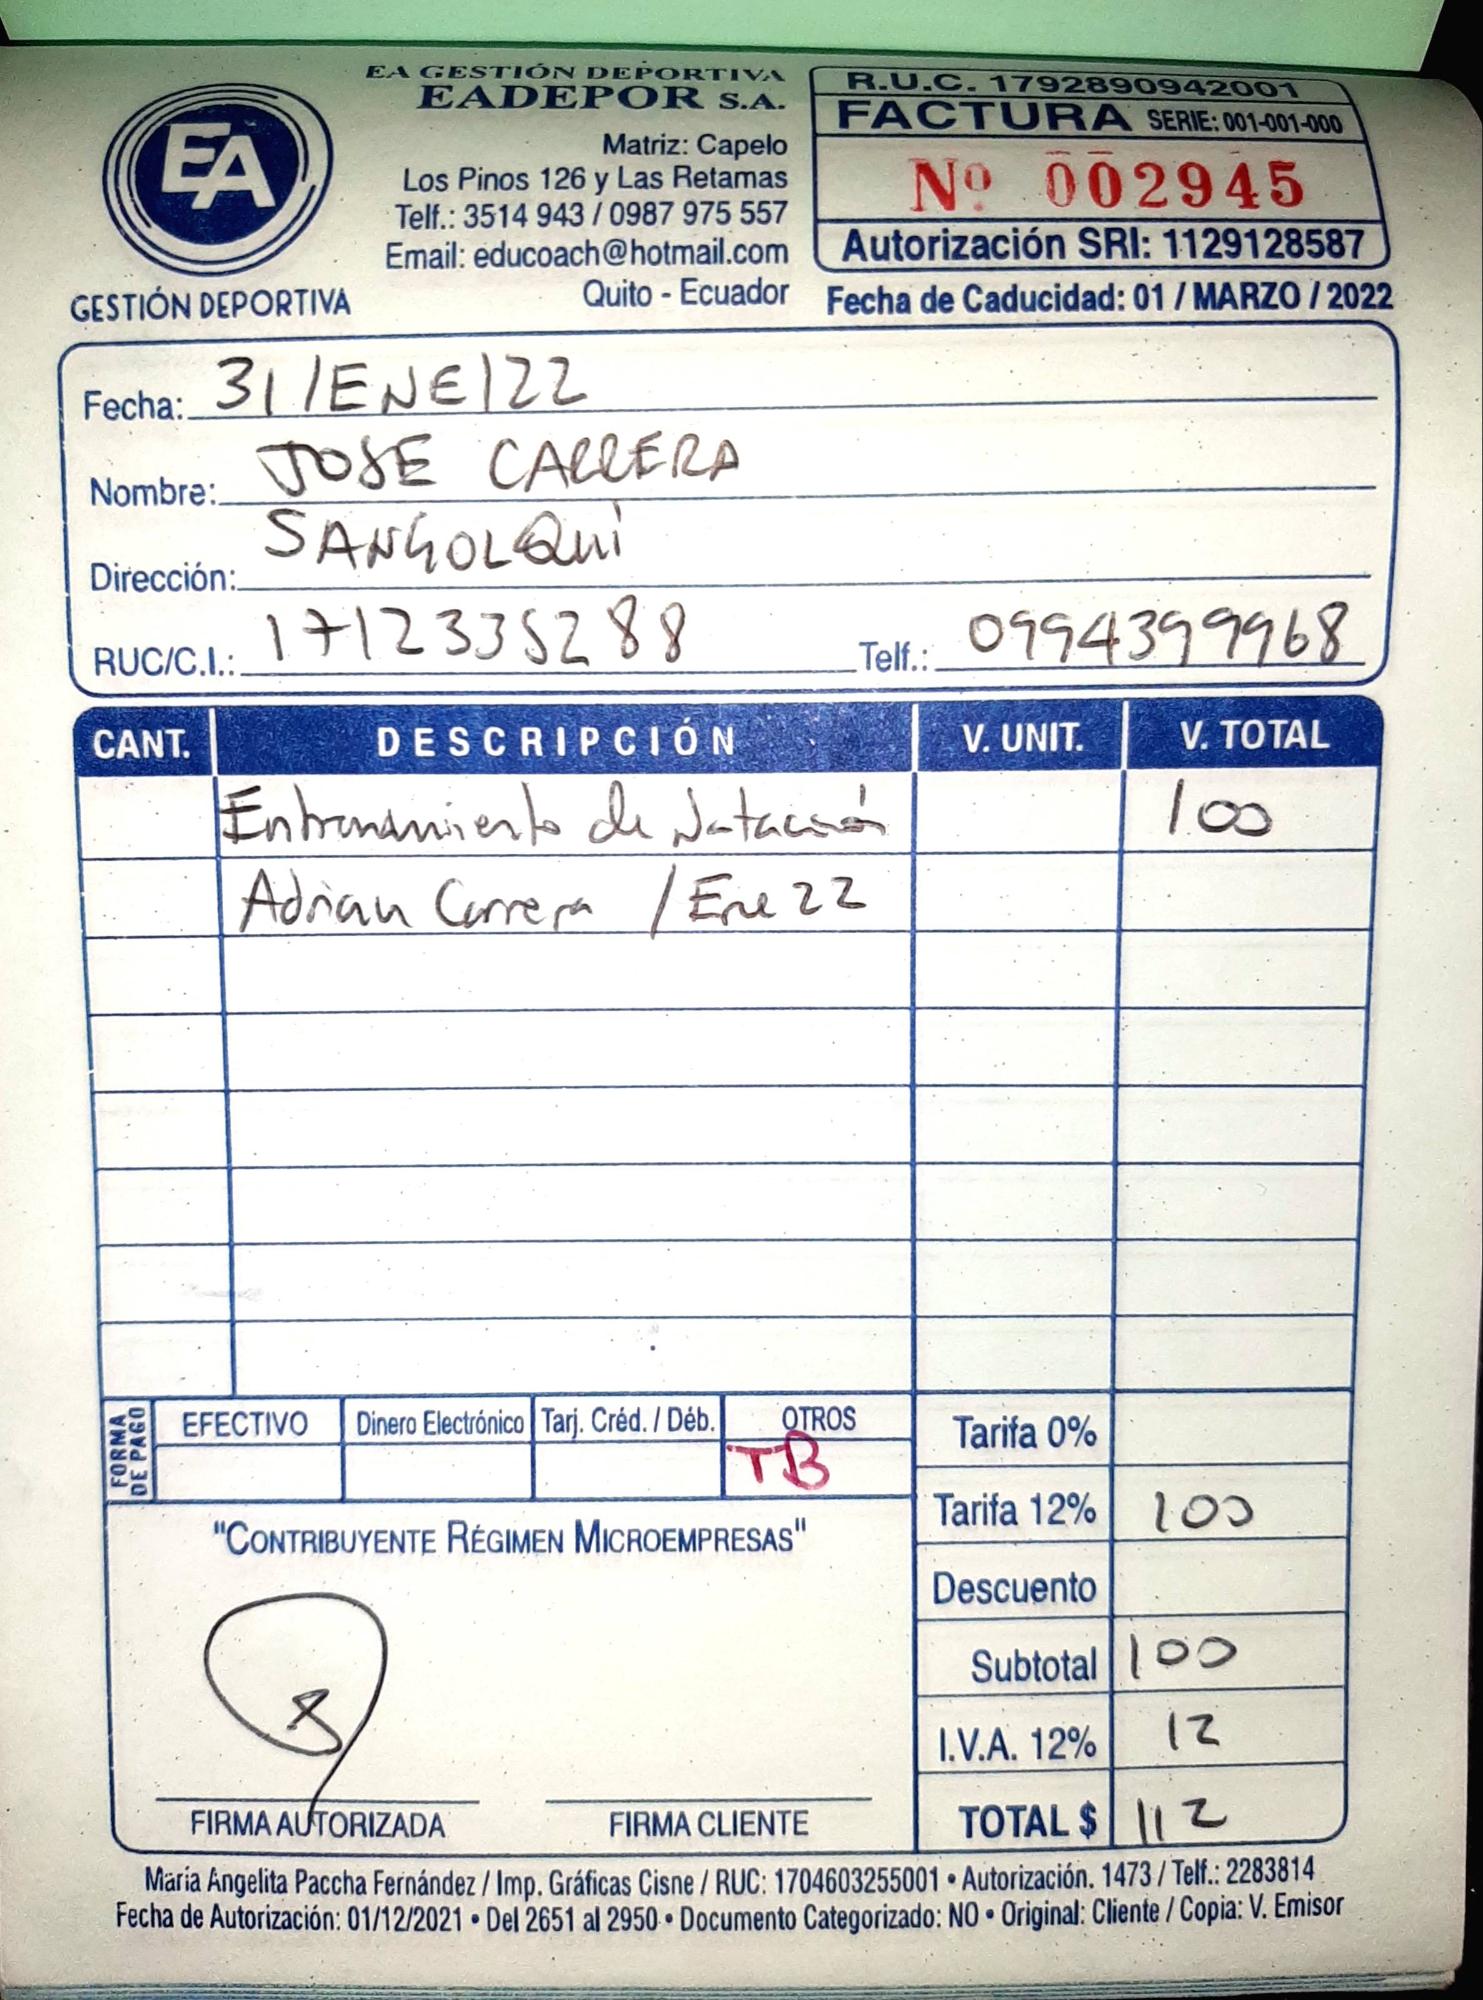 EA GESTIÓN DEPORTIVA
EADEPOR S.A.
EA
GESTIÓN DEPORTIVA
Matriz: Capelo
Los Pinos 126 y Las Retamas
Telf.: 3514 943 / 0987 975 557
Email: educoach@hotmail.com
Quito - Ecuador
R.U.C. 1792890942001
FACTURA SERIE: 001-001-000
Nº 002945
Autorización SRI: 1129128587
Fecha de Caducidad: 01 / MARZO / 2022
Fecha: 31/ENE/22
Nombre: JOSE CARRERA
Dirección: SANGOLQUí
RUC/C.I.: 1712335288 Telf.: 0994399968
CANT. DESCRIPCIÓN V. UNIT. V. TOTAL
Entrenamiento de Natación 100
Adrian Carrera / Ene 22
FORMA DE PAGO
EFECTIVO Dinero Electrónico Tarj. Créd. / Déb. OTROS
TB
Tarifa 0%
Tarifa 12% 100
Descuento
Subtotal 100
I.V.A. 12% 12
TOTAL $ 112
"CONTRIBUYENTE RÉGIMEN MICROEMPRESAS"
FIRMA AUTORIZADA FIRMA CLIENTE
María Angelita Paccha Fernández / Imp. Gráficas Cisne / RUC: 1704603255001 • Autorización. 1473 / Telf.: 2283814
Fecha de Autorización: 01/12/2021 • Del 2651 al 2950 • Documento Categorizado: NO • Original: Cliente / Copia: V. Emisor